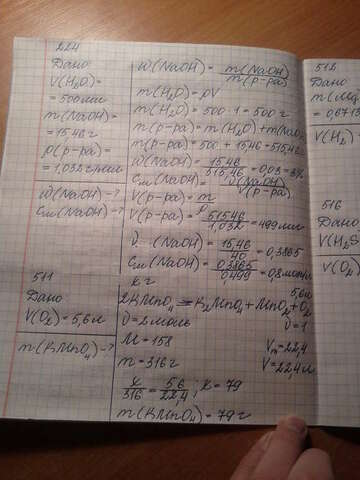 224
Дано
V(H₂O)=
=500мл
m(NaOH)
=15,46г
ρ(р-ра)=
=1,032г/мл
ω(NaOH)-?
Cm(NaOH)-?
ω(NaOH)= m(NaOH)/m(р-ра)
m(H₂O)=ρV
m(H₂O)= 500·1=500г
m(р-ра)=m(H₂O)+m(NaO
m(р-ра)=500+15,46=515,46
ω(NaOH)= 15,46/515,46=0,03=3%
Cm(NaOH)= ν(NaOH)/V(р-ра)
V(р-ра)= m/ρ
V(р-ра)= 515,46/1,032=499мл
ν (NaOH)= 15,46/40=0,3865
Cm(NaOH)= 0,3865/0,499=0,8моль
511
Дано
V(O₂)=5,6л
m(KMnO₄)-?
x г
5,6л
2KMnO₄=K₂MnO₄+MnO₂+O₂
ν=2моль
ν=1
M=158
Vm=22,4
m=316г
V=22,4л
x/316=5,6/22,4; x=79
m(KMnO₄)=79г
512
Дано
m(Mg
=0,0713
V(H₂)
516
Дано
V(H₂S
V(O₂)